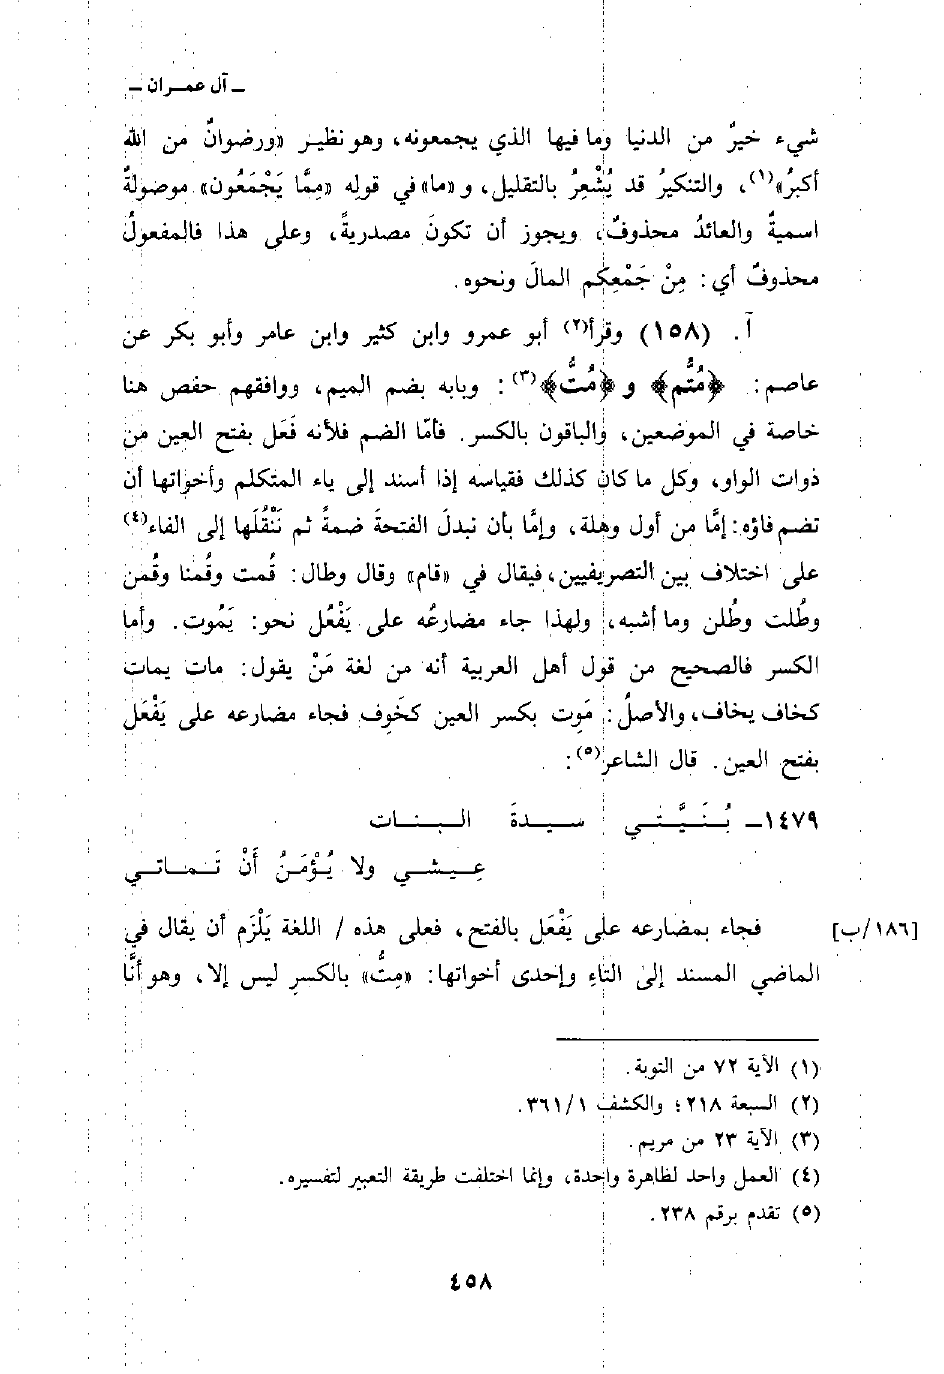 ــ آل عمــران ــ
شيء خيرٌ من الدنيا وما فيها الذي يجمعونه، وهو نظيـر «ورضوانٌ من الله
أكبرُ»(١)، والتنكيرُ قد يُشْعِرُ بالتقليل، و «ما» في قوله «مِمَّا يَجْمَعُون» موصولةٌ
اسميةٌ والعائدُ محذوفٌ، ويجوز أن تكونَ مصدريةً، وعلى هذا فالمفعولُ
محذوفٌ أي: مِنْ جَمْعِكم المالَ ونحوه.
آ. (١٥٨) وقرأ(٢) أبو عمرو وابن كثير وابن عامر وأبو بكر عن
عاصم: ﴿مُتُّم﴾ و ﴿مُتُّ﴾(٣): وبابه بضم الميم، ووافقهم حفص هنا
خاصة في الموضعين، والباقون بالكسر. فأمَّا الضم فلأنه فَعَل بفتح العين من
ذوات الواو، وكل ما كان كذلك فقياسه إذا أسند إلى ياء المتكلم وأخواتها أن
تضم فاؤه: إمَّا من أول وهلة، وإمَّا بأن نبدلَ الفتحةَ ضمةً ثم نَنْقُلَها إلى الفاء(٤)
على اختلاف بين التصريفيين، فيقال في «قام» وقال وطال: قُمت وقُمنا وقُمن
وطُلت وطُلن وما أشبه، ولهذا جاء مضارعُه على يَفْعُل نحو: يَمُوت. وأما
الكسر فالصحيح من قول أهل العربية أنه من لغة مَنْ يقول: مات يمات
كخاف يخاف، والأصلُ: مَوِت بكسر العين كخَوِف فجاء مضارعه على يَفْعَل
بفتح العين. قال الشاعر(٥):
١٤٧٩ــ بُـنَـيَّـتـي سـيـدةَ الـبـنـات
عِـيـشـي ولا يُـؤْمَـنُ أَنْ تَـمـاتـي
[١٨٦/ب] فجاء بمضارعه على يَفْعَل بالفتح، فعلى هذه / اللغة يَلْزَم أن يقال في
الماضي المسند إلى التاءِ وإحدى أخواتها: «مِتُّ» بالكسرِ ليس إلا، وهو أنَّا
(١) الآية ٧٢ من التوبة.
(٢) السبعة ٢١٨؛ والكشف ٣٦١/١.
(٣) الآية ٢٣ من مريم.
(٤) العمل واحد لظاهرة واحدة، وإنما اختلفت طريقة التعبير لتفسيره.
(٥) تقدم برقم ٢٣٨.
٤٥٨